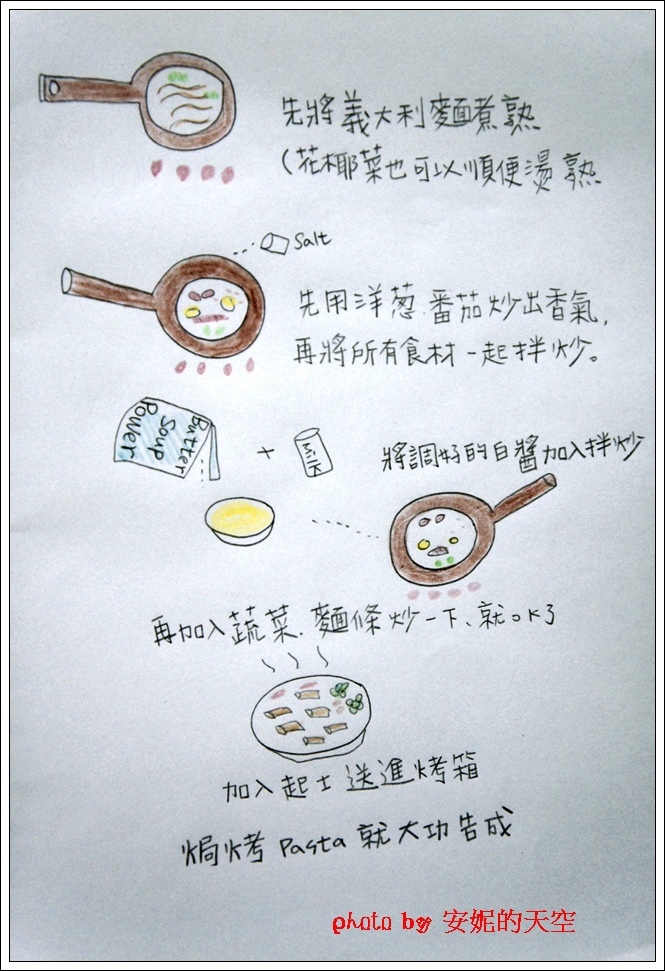 先將義大利麵煮熟
(花椰菜也可以順便燙熟
Salt
先用洋葱.番茄炒出香氣,
再將所有食材一起拌炒。
Butter
Soup
Power
+
MilK
將調好的白醬加入拌炒
再加入蔬菜.麵條炒一下、就OK了
加入起士送進烤箱
焗烤Pasta就大功告成
photo by 安妮的天空